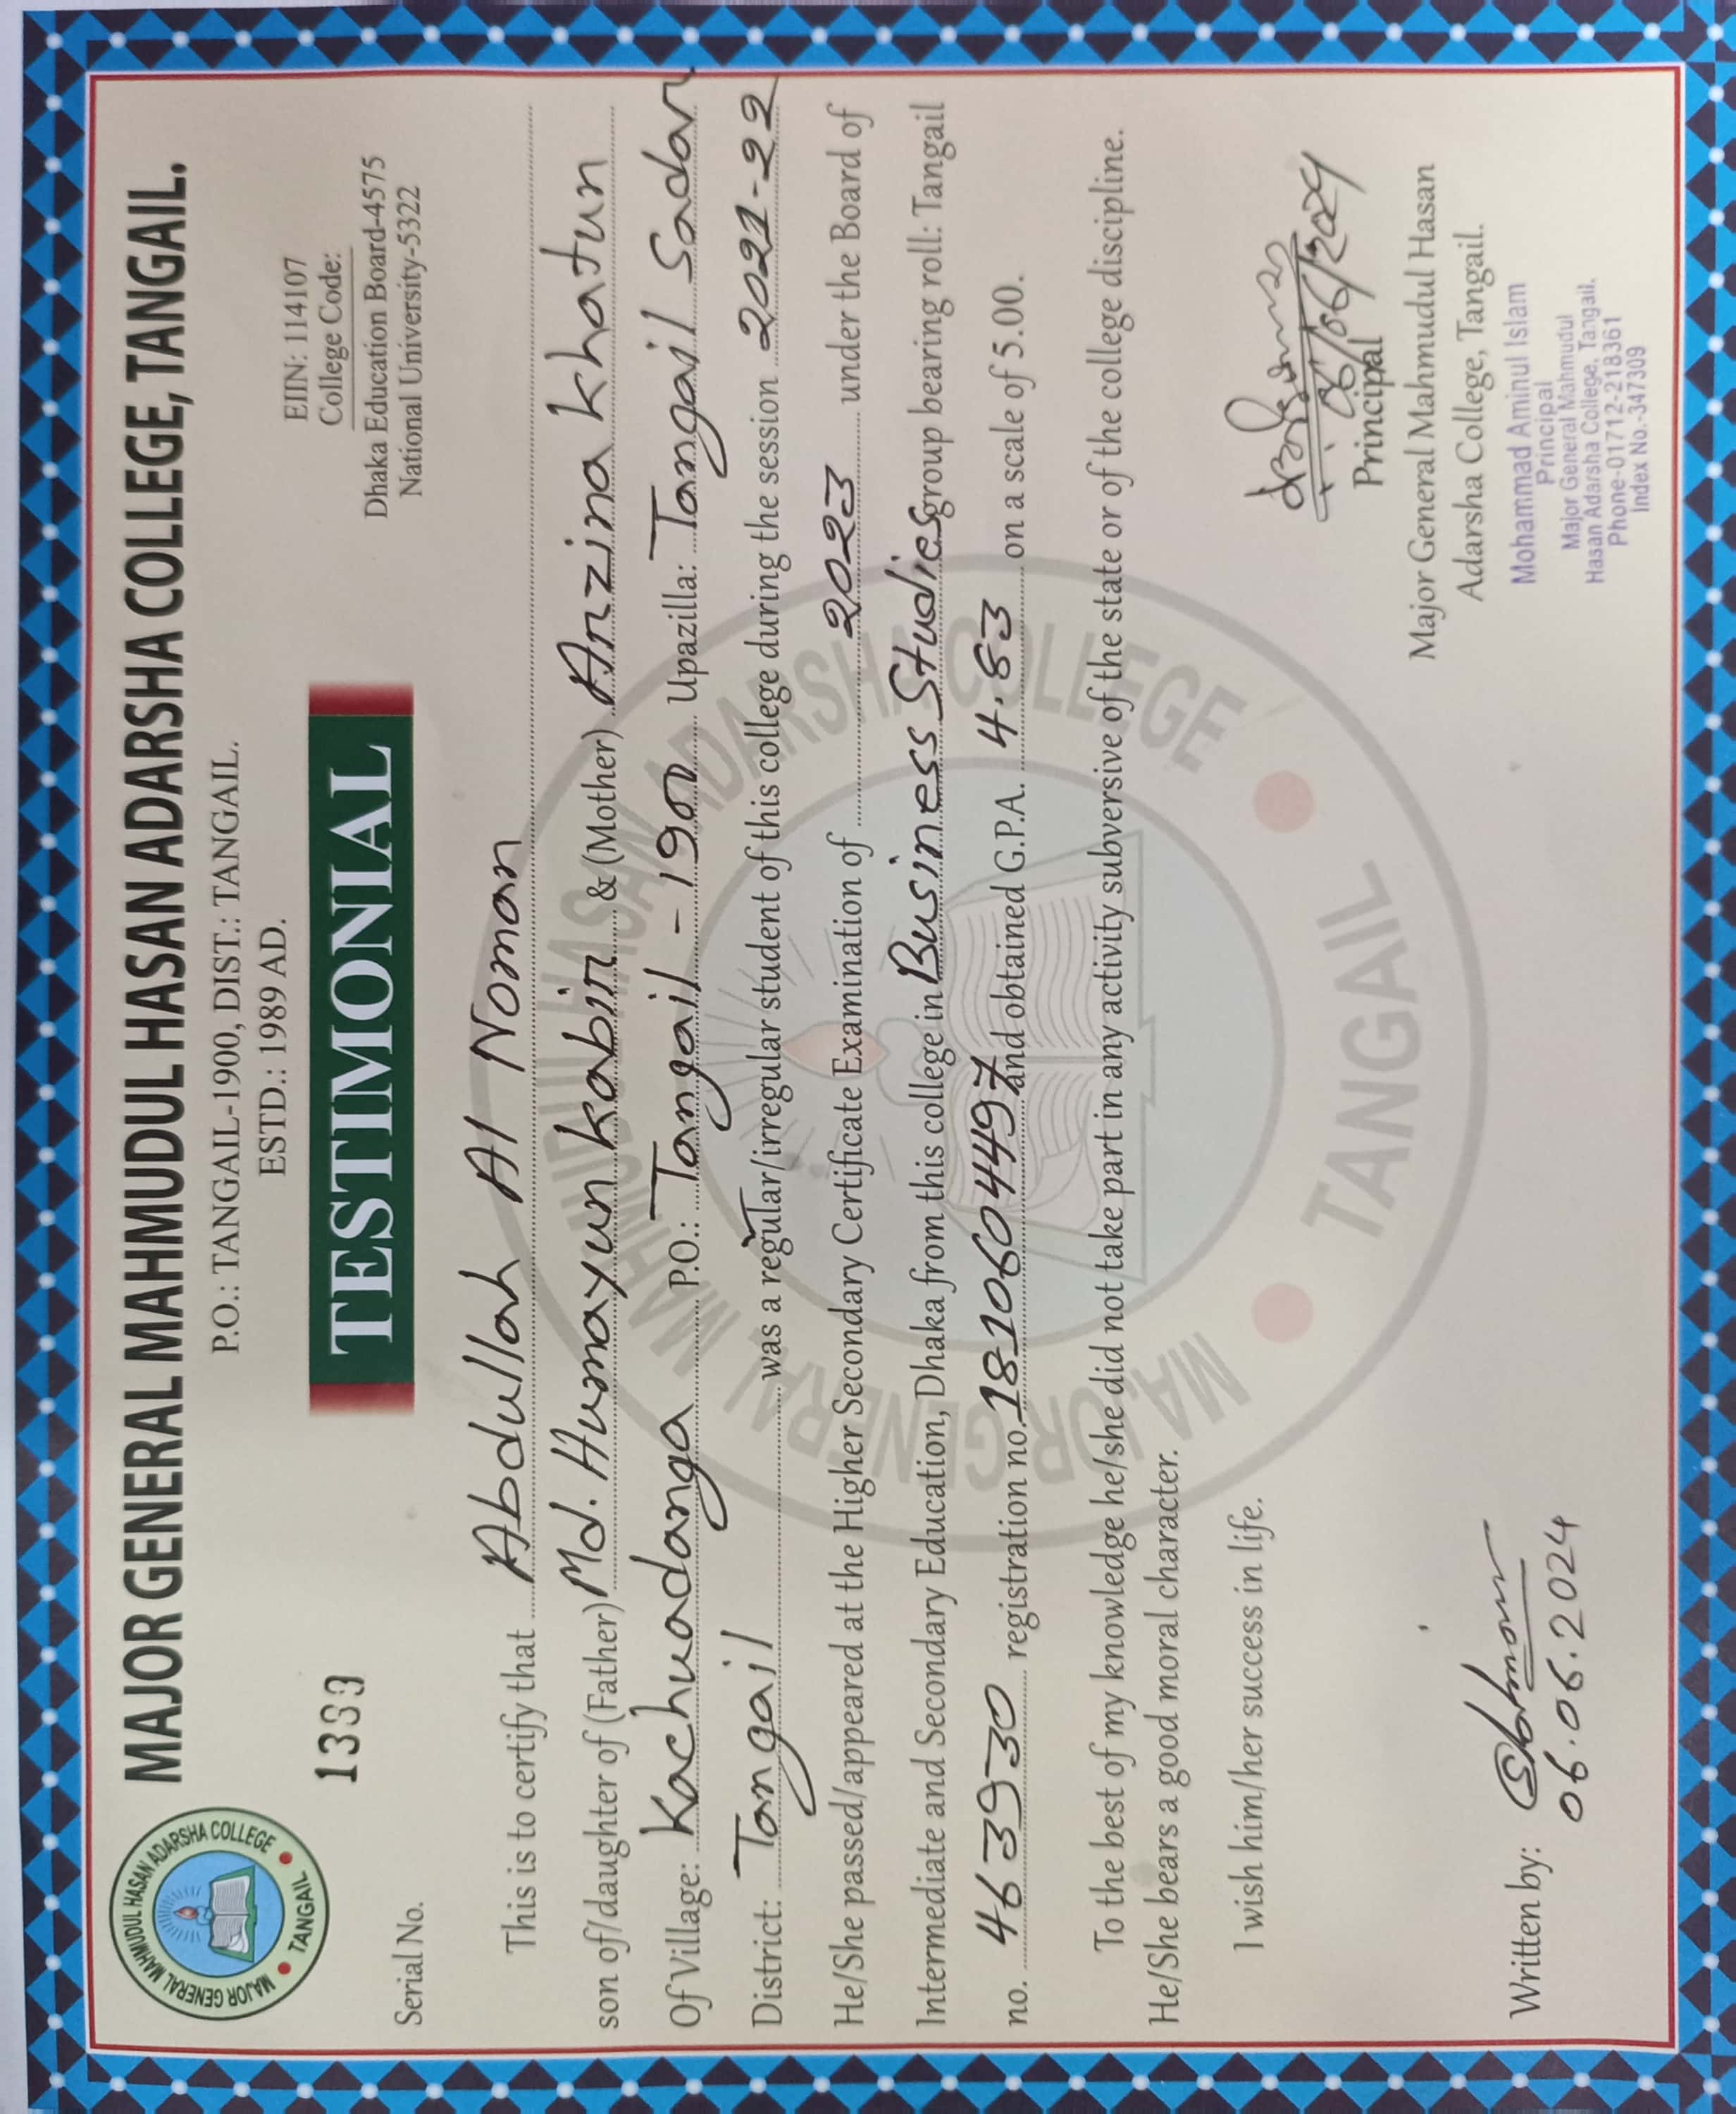 MAJOR GENERAL MAHMUDUL HASAN ADARSHA COLLEGE, TANGAIL.
P.O.: TANGAIL-1900, DIST.: TANGAIL.
ESTD.: 1989 AD.
MAJOR GENERAL MAHMUDUL HASAN ADARSHA COLLEGE
TANGAIL
EIIN: 114107
College Code:
Dhaka Education Board-4575
National University-5322
1339
Serial No.
TESTIMONIAL
This is to certify that Abdullah Al Noman
son of/daughter of (Father) Md. Humayun kabir & (Mother) Anzina khatun
Of Village: Kachuadanga P.O.: Tangail - 1900 Upazilla: Tangail Sadar
District: Tangail was a regular/irregular student of this college during the session 2021-22
He/She passed/appeared at the Higher Secondary Certificate Examination of 2023 under the Board of
Intermediate and Secondary Education, Dhaka from this college in Business Studies group bearing roll: Tangail
no. 463930 registration no. 1810604497 and obtained G.P.A. 4.83 on a scale of 5.00.
To the best of my knowledge he/she did not take part in any activity subversive of the state or of the college discipline.
He/She bears a good moral character.
I wish him/her success in life.
MAJOR GENERAL MAHMUDUL HASAN ADARSHA COLLEGE
TANGAIL
06/06/2024
Principal
Major General Mahmudul Hasan
Adarsha College, Tangail.
Mohammad Aminul Islam
Principal
Major General Mahmudul
Hasan Adarsha College, Tangail.
Phone-01712-218361
Index No.-347309
Written by:
06.06.2024